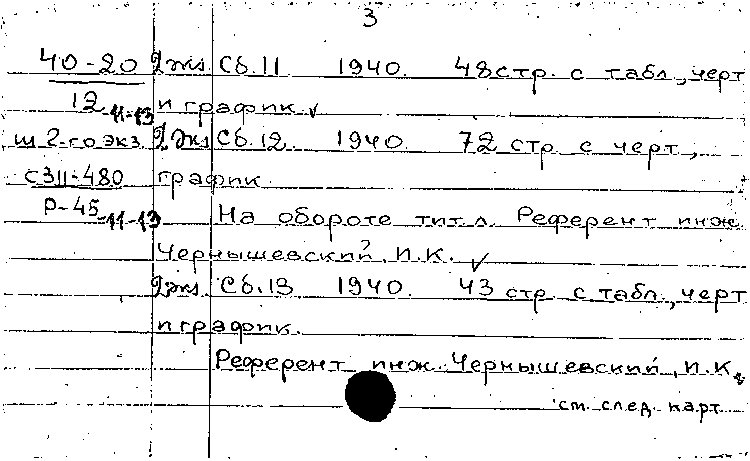 3
40-20 2 экз. Сб. 11 1940. 48 стр. с табл., черт
12-11-13 и график. ✓
Ш 2-го экз. 2 экз. Сб. 12 1940. 72 стр. с черт.,
С311-480 график.
Р-45-11-13 На обороте тит. л. Референт инж.
Чернышевский, И.К. ✓
2 экз. Сб. 13 1940. 43 стр. с табл., черт
и график.
Референт инж. Чернышевский, И.К.
см. след. карт